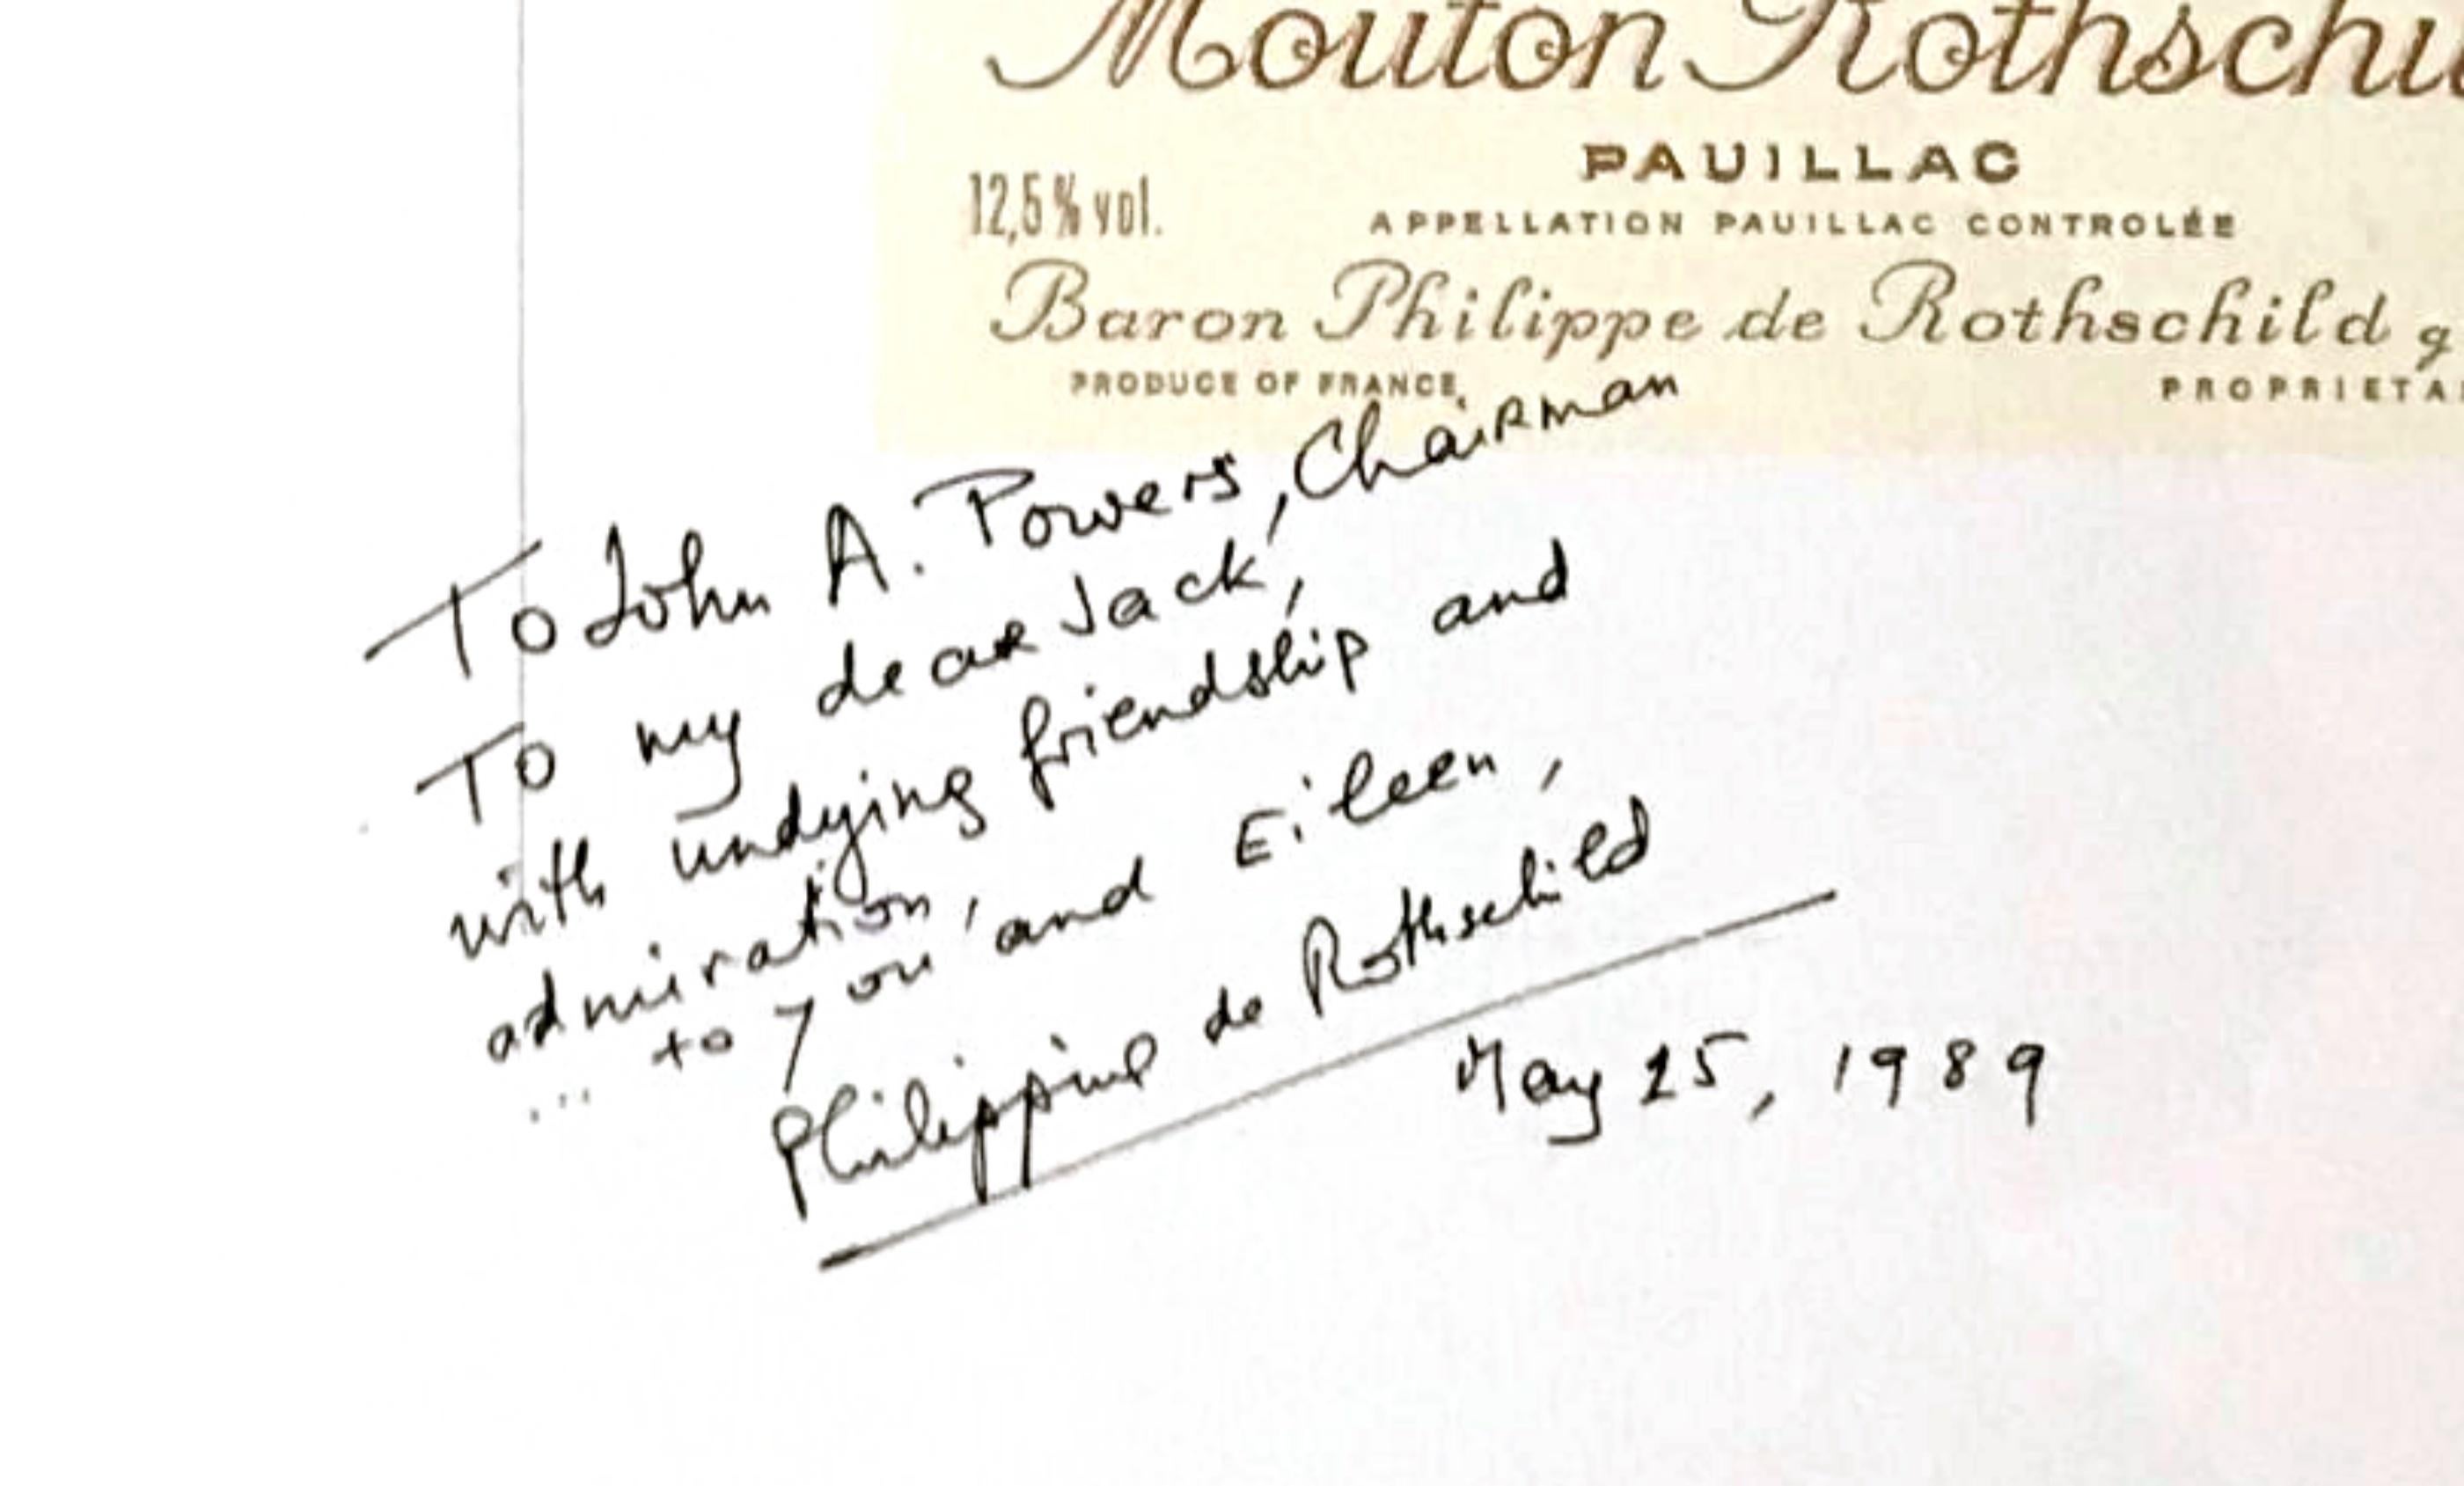 Mouton Rothschi
PAUILLAC
12,5% vol.
APPELLATION PAUILLAC CONTROLÉE
Baron Philippe de Rothschild g
PRODUCE OF FRANCE
PROPRIETA
To John A. Powers, Chairman
To my dear Jack,
with undying friendship and
admiration,
... to you and Eileen,
Philippine de Rothschild
May 25, 1989